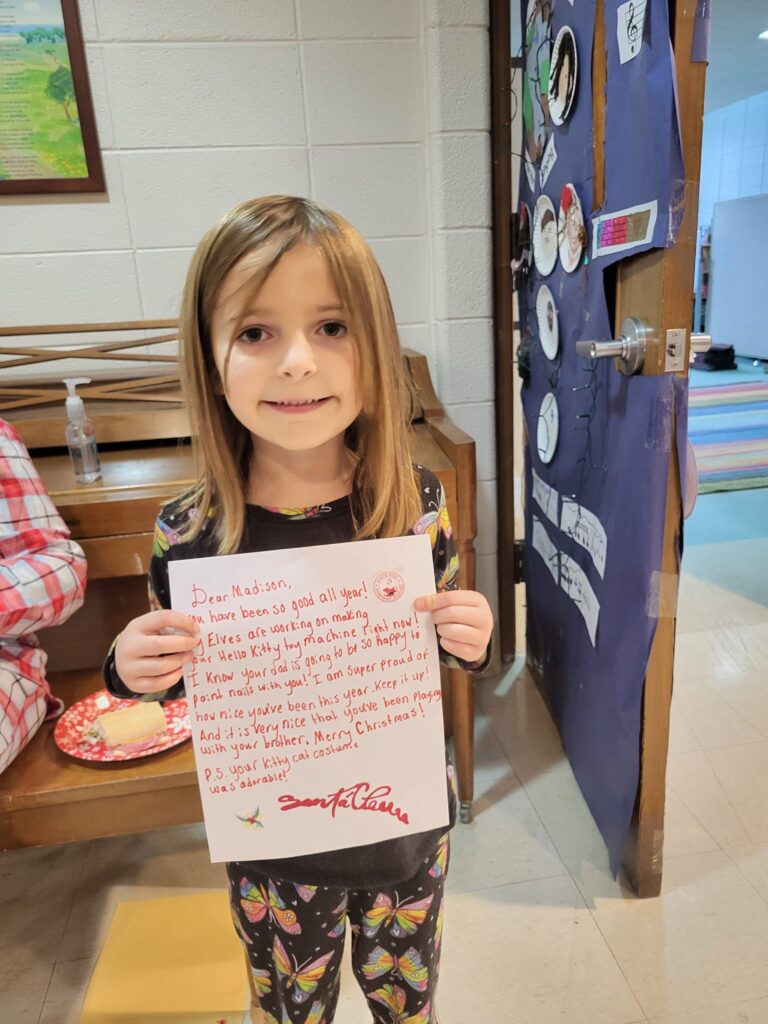 Dear Madison,
ou have been so good all year!
y Elves are working on making
our Hello Kitty toy machine right now!
I know your dad is going to be so happy to
paint nails with you! I am super proud of
how nice you've been this year. Keep it up!
And it is very nice that you've been playing
with your brother. Merry Christmas!
P.S. your Kitty cat costume
was adorable!
Santa Claus